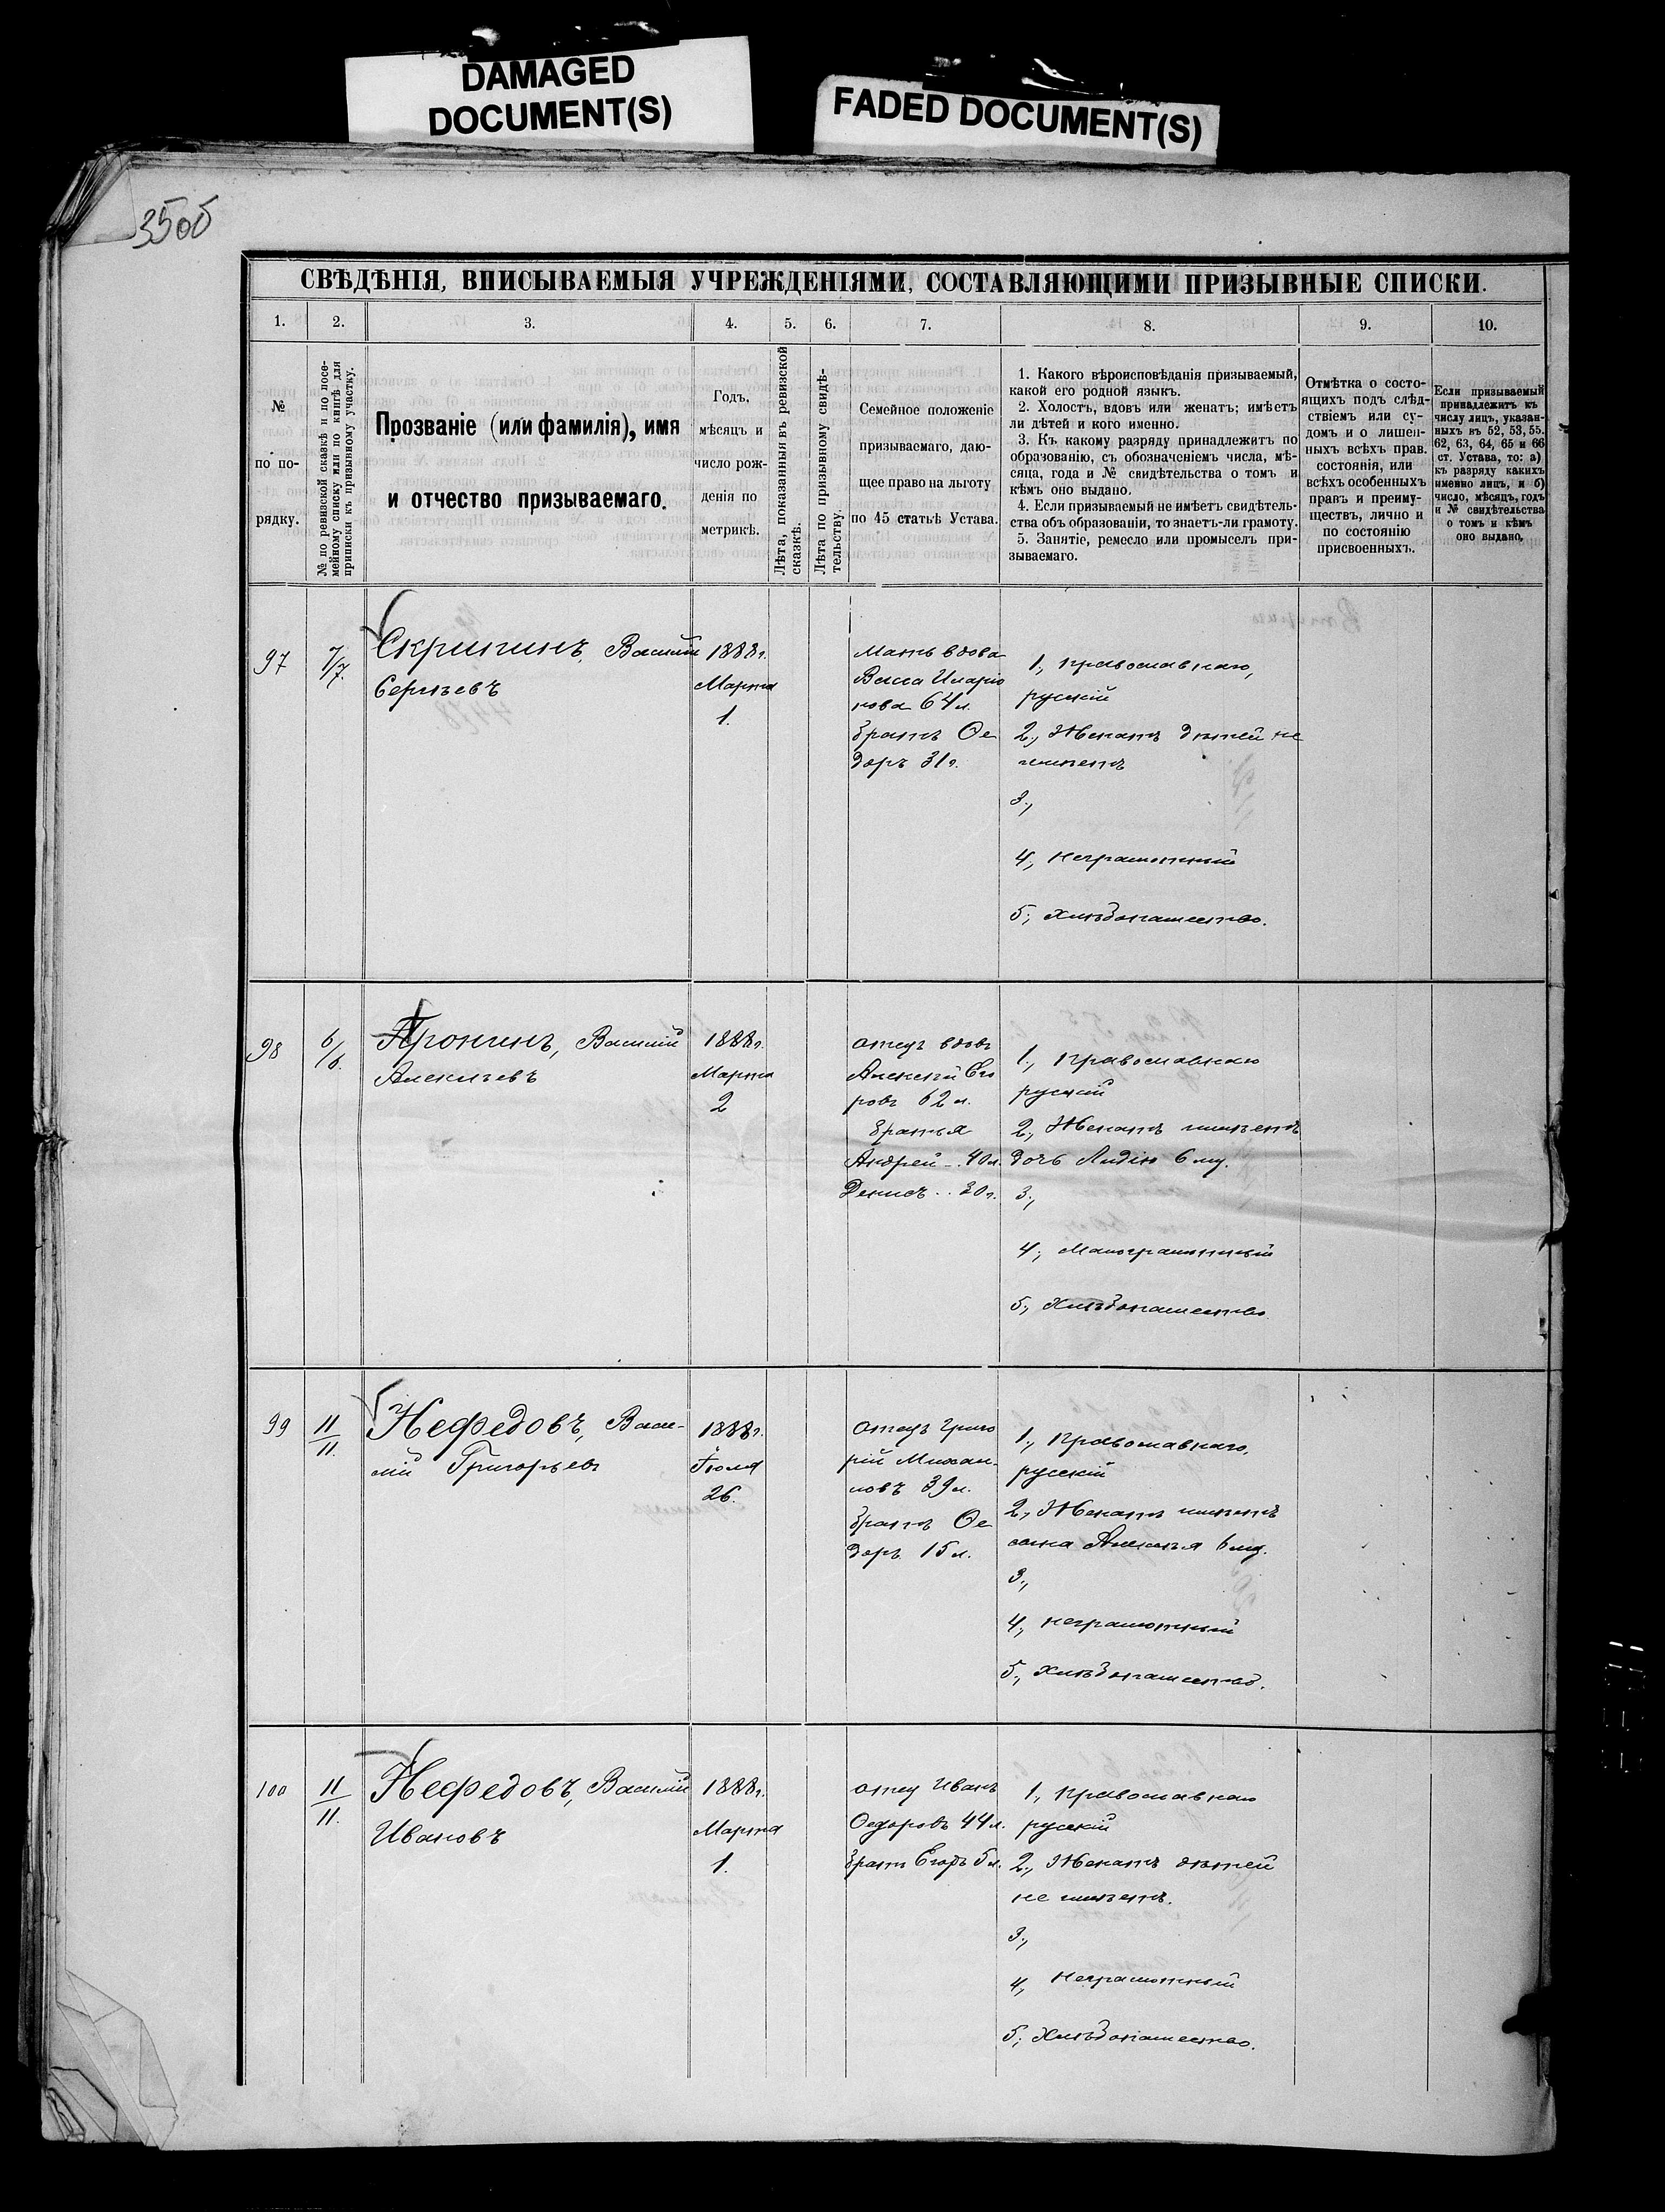 DAMAGED
DOCUMENT(S)
FADED DOCUMENT(S)
35об
СВѢДѢНІЯ, ВПИСЫВАЕМЫЯ УЧРЕЖДЕНІЯМИ, СОСТАВЛЯЮЩИМИ ПРИЗЫВНЫЕ СПИСКИ.
1. 2. 3. 4. 5. 6. 7. 8. 9. 10.
№
по по-
рядку.
№ по ревизской сказкѣ и по посе-
мейному списку или по книгѣ для
приписки къ призывному участку.
Прозваніе (или фамилія), имя
и отчество призываемаго.
Годъ,
мѣсяцъ и
число рож-
денія по
метрикѣ.
Лѣта, показанныя въ ревизской
сказкѣ.
Лѣта по призывному свидѣ-
тельству.
Семейное положеніе
призываемаго, даю-
щее право на льготу
по 45 статьѣ Устава.
1. Какого вѣроисповѣданія призываемый,
какой его родной языкъ.
2. Холостъ, вдовъ или женатъ; имѣетъ
ли дѣтей и кого именно.
3. Къ какому разряду принадлежитъ по
образованію, съ обозначеніемъ числа, мѣ-
сяца, года и № свидѣтельства о томъ и
кѣмъ оно выдано.
4. Если призываемый не имѣетъ свидѣтель-
ства объ образованіи, то знаетъ-ли грамоту.
5. Занятіе, ремесло или промыселъ при-
зываемаго.
Отмѣтка о состо-
ящихъ подъ слѣд-
ствіемъ или су-
домъ и о лишен-
ныхъ всѣхъ прав.
состоянія, или
всѣхъ особенныхъ
правъ и преиму-
ществъ, лично и
по состоянію
присвоенныхъ.
Если призываемый
принадлежитъ къ
числу лицъ, указан-
ныхъ въ 52, 53, 55.
62, 63, 64, 65 и 66
ст. Устава, то: а)
къ разряду какихъ
именно лицъ, и б)
число, мѣсяцъ, годъ
и № свидѣтельства
о томъ и кѣмъ
оно выдано.
97
7/7.
Скрипинъ, Василій
Сергѣевъ
1888г.
Марта
1.
Мать вдова
Васса Иларіо
нова 64 л.
братъ Ѳе
доръ 31 г.
1., православнаго,
русскій
2., Женатъ дѣтей не
имѣетъ
3.,
4., неграмотный
5., хлѣбопашество.
98
6/6.
Пронинъ, Василій
Алексѣевъ
1888г.
Марта
2
отецъ вдовъ
Алексѣй Его
ровъ 62 л.
братья
Андрей - 40 л.
Денисъ .. 30 г.
1., православнаго
русскій
2., Женатъ имѣетъ
дочь Лидію 6 мц.
3.,
4., Малограмотный
5., Хлѣбопашество
99
11/11.
Нефедовъ, Васи-
лій Григорьевъ
1888г.
Іюля
26.
отецъ Григо
рій Михаи-
ловъ 39 л.
братъ Ѳе
доръ 15 л.
1., православнаго,
русскій
2., Женатъ имѣетъ
сына Алексѣя 6 мц.
3.,
4., неграмотный
5., хлѣбопашество.
100
11/11.
Нефедовъ, Василій
Ивановъ
1888г.
Марта
1.
отец Иванъ
Ѳедоровъ 44 л.
братъ Егоръ 5 л.
1., православнаго
русскій
2., Женатъ дѣтей
не имѣетъ.
3.,
4., неграмотный
5., Хлѣбопашество.